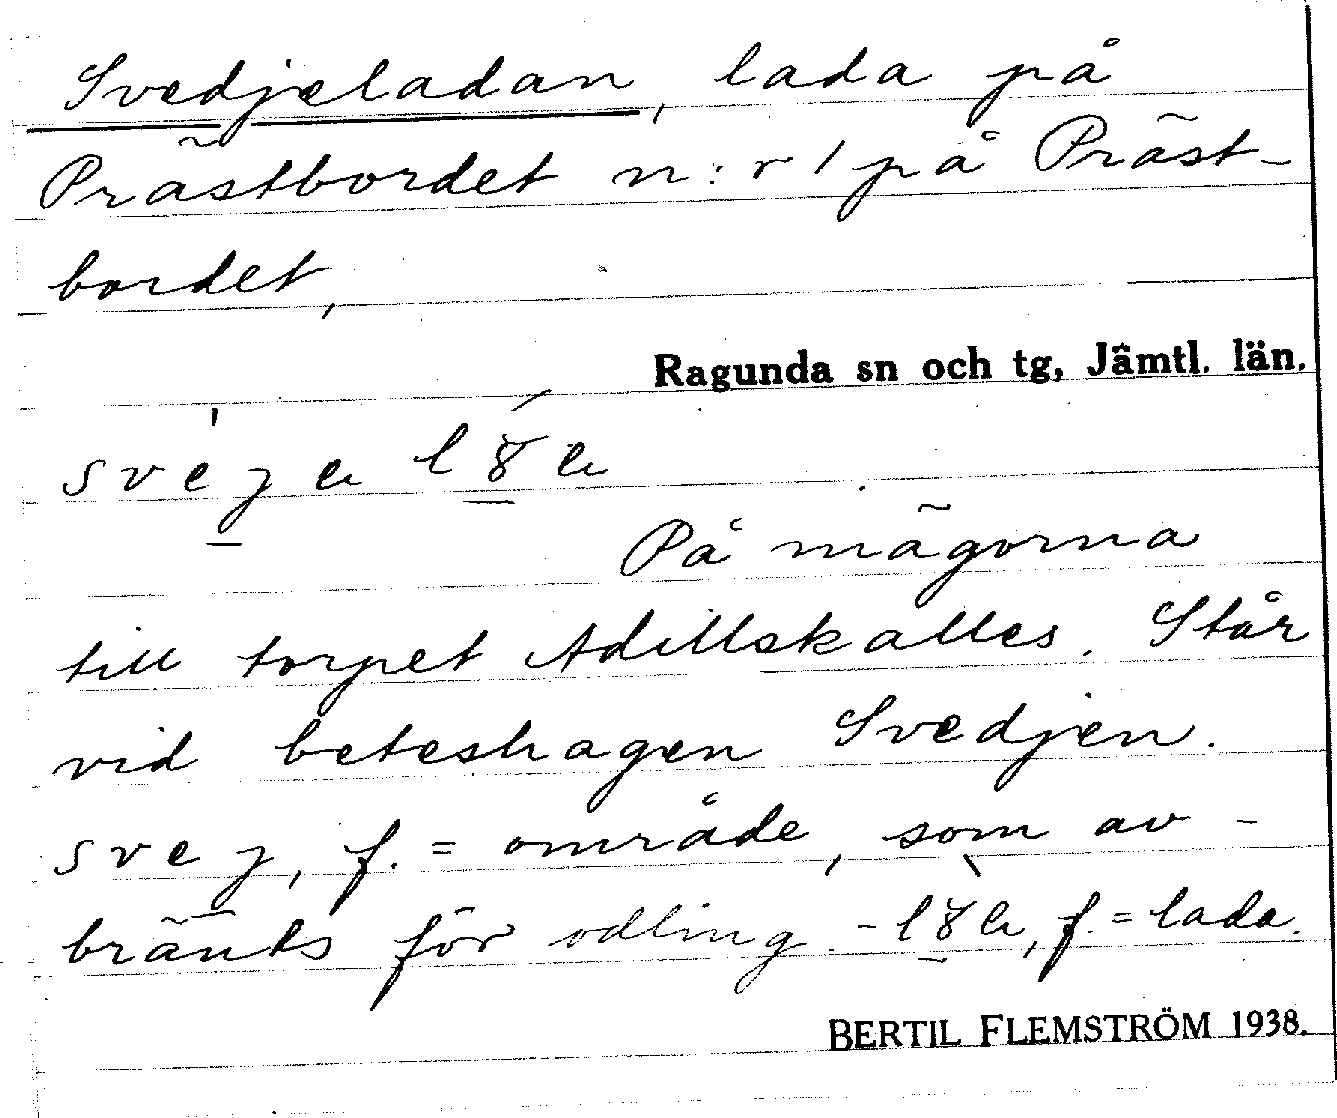 Svedjeladan, lada på
Prästbordet n:r 1 på Präst-
bordet,
Ragunda sn och tg, Jämtl. län.
På mägorna
till torpet Adillskalles. Står
vid beteshagen Svedjen.
svej, f. = område, som av-
bränts för odling. - f. = lada.
BERTIL FLEMSTRÖM 1938.